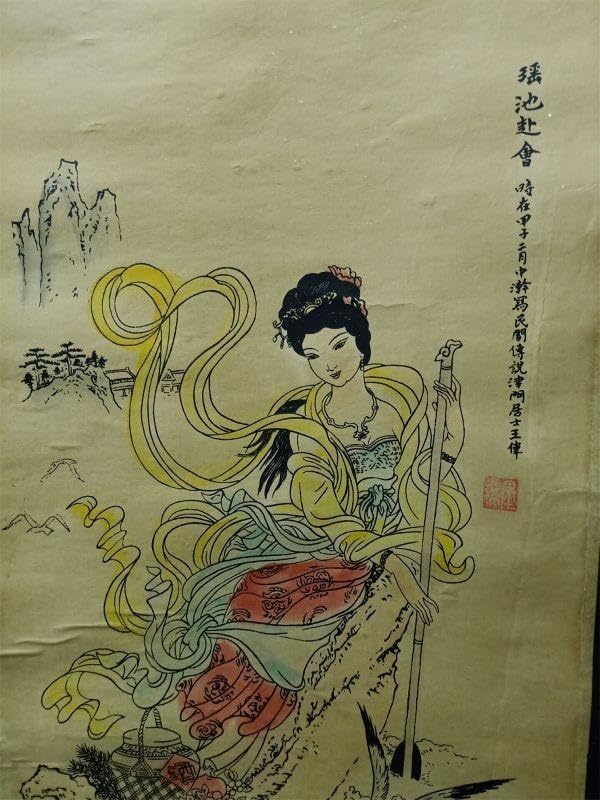 瑶池赴會
時在甲子二月中澣寫民間傳說津門居士王偉
酒